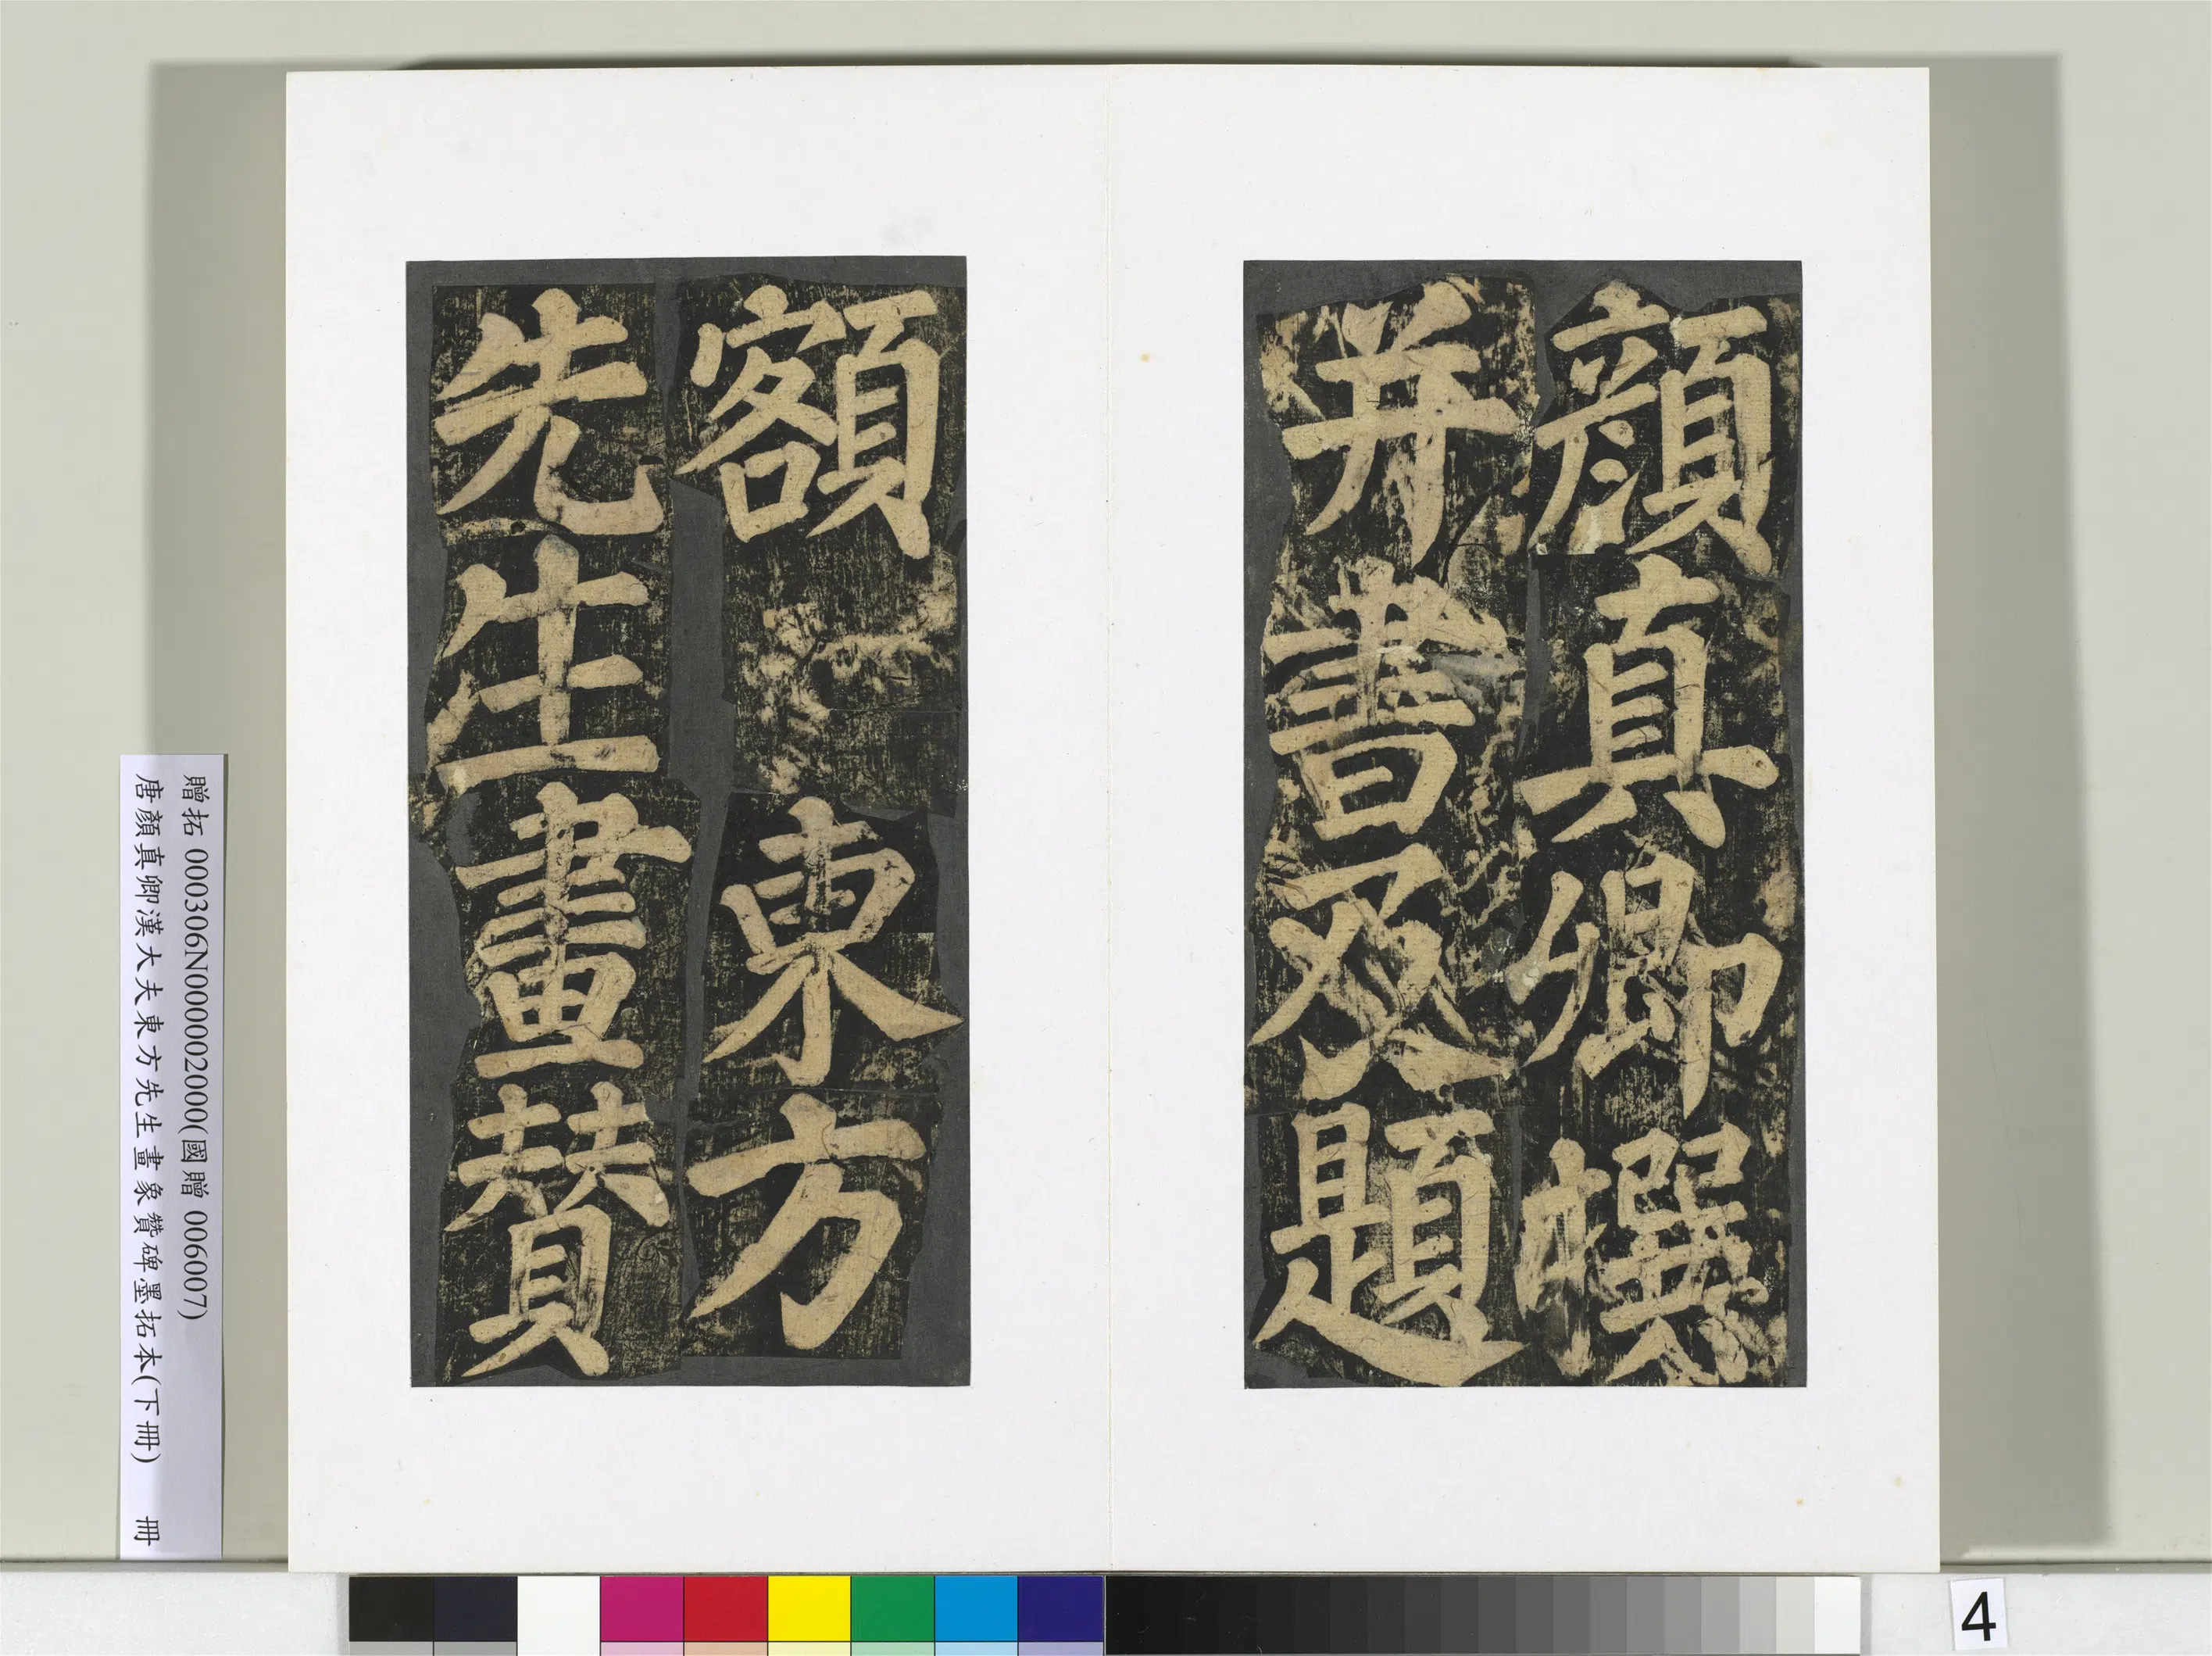 顏真卿撰
并書及題
額東方
先生畫賛
贈拓 000306N000002000(國贈 006007)
唐顏真卿漢大夫東方先生畫象贊碑墨拓本(下冊) 冊
4